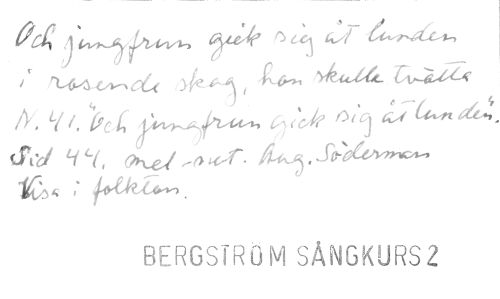 Och jungfrun gick sig åt lunden
i rosende skog, hon skulle tvätta
N. 41. "Och jungfrun gick sig åt lunden".
Sid 44. mel-not. Aug. Söderman
Visa i folkton.
BERGSTRÖM SÅNGKURS 2